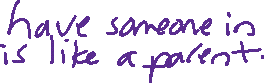 have someone in
is like a parent.